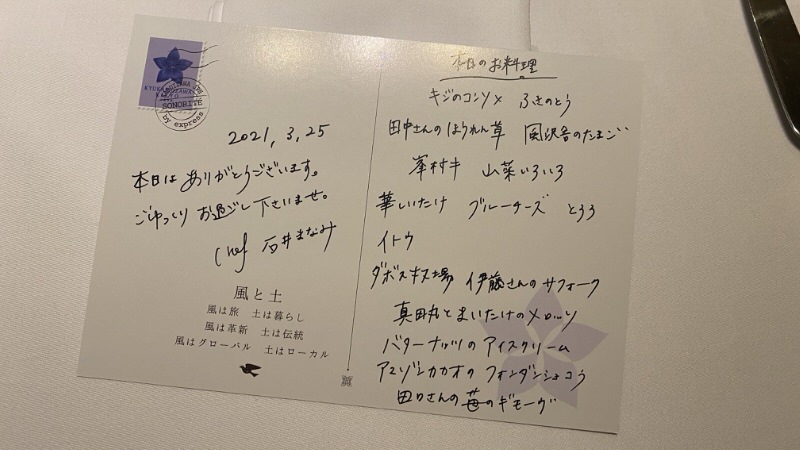 KYUKARUIZAWA
KIKYO
KARUIZAWA SPA
SONORITE
by express
2021, 3, 25
本日は ありがとうございます。
ごゆっくり お過ごし 下さいませ。
Chef 石井まなみ
風と土
風は旅 土は暮らし
風は革新 土は伝統
風はグローバル 土はローカル
本日のお料理
キジのコンソメ ふきのとう
田中さんのほうれん草 風沢舎のたまご
峯村牛 山菜いろいろ
華しいたけ ブルーチーズ とうう
イトウ
ダボスキス場 伊藤さんのサフォーク
真田丸とまいたけのメロッソ
バターナッツのアイスクリーム
アマゾンカカオの フォンダンショコラ
田口さんの苺のギモーヴ